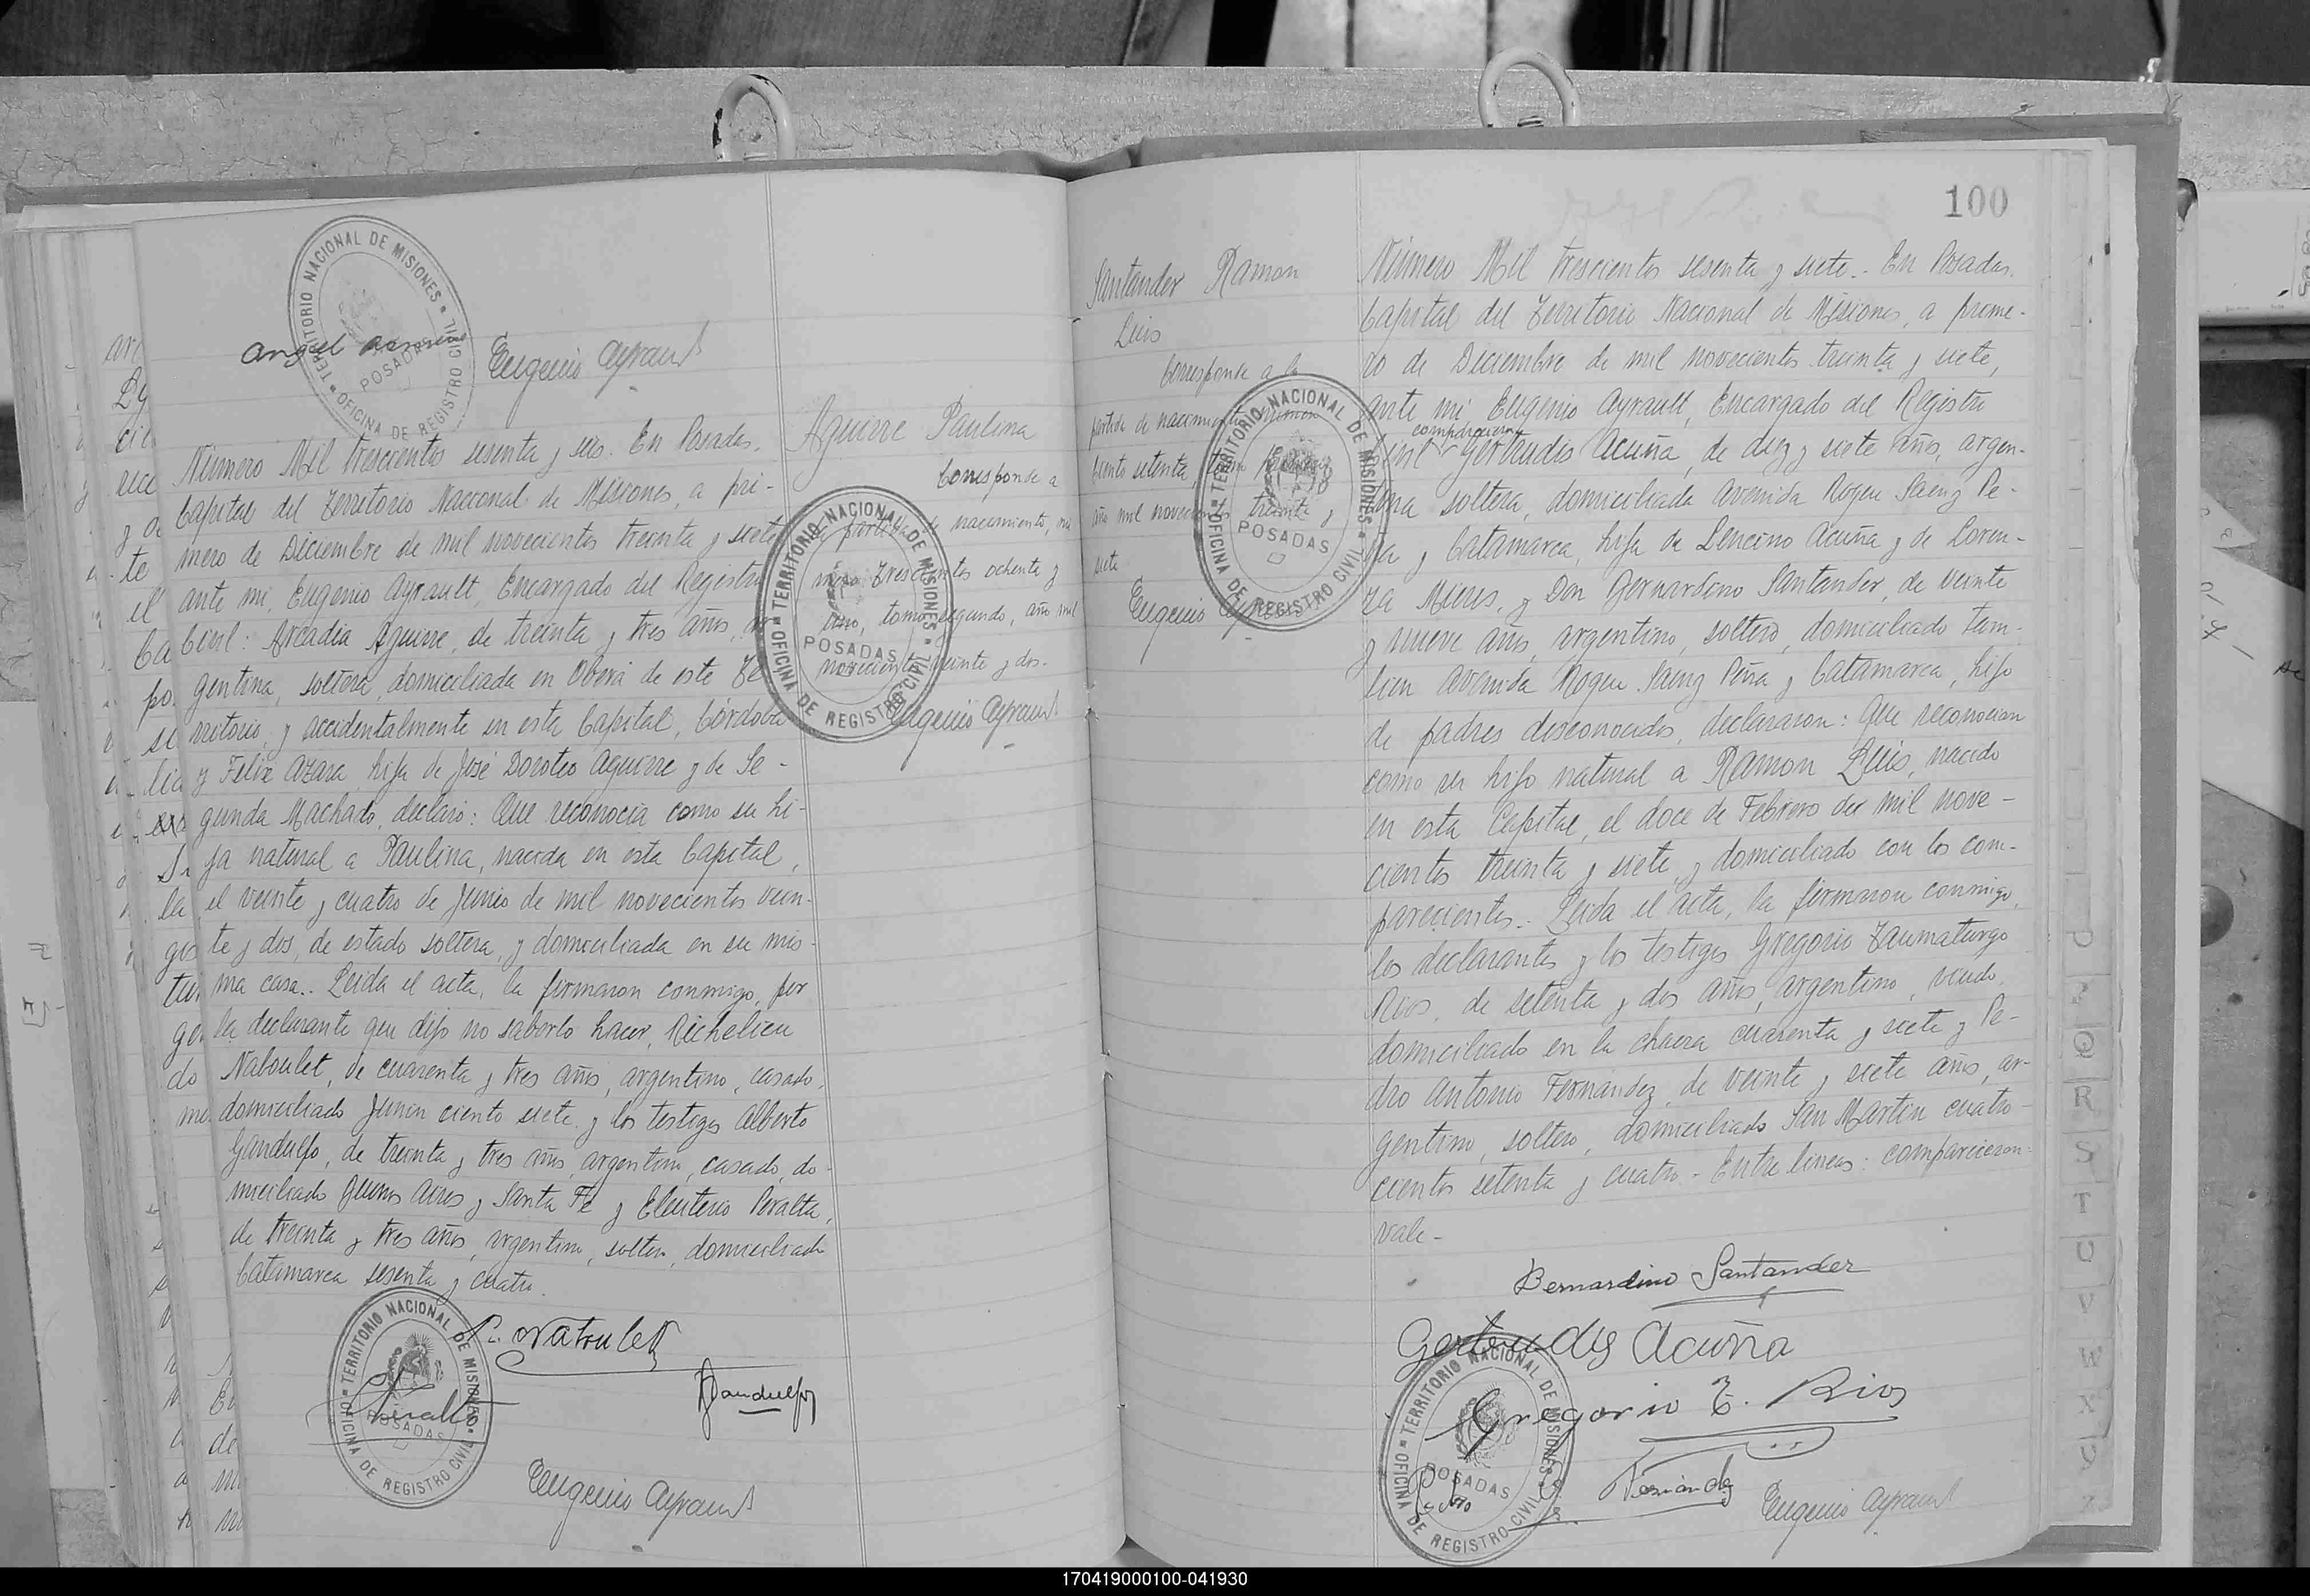 TERRITORIO NACIONAL DE MISIONES
OFICINA DE REGISTRO CIVIL
POSADAS
Eugenio Ayrault
Número Mil trescientos sesenta y seis. En Posadas,
Capital del Territorio Nacional de Misiones, a pri-
mero de Diciembre de mil novecientos treinta y siete
ante mi, Eugenio Ayrault, Encargado del Registro
Civil: Arcadia Aguirre, de treinta y tres años, ar
gentina, soltera, domiciliada en Oberá de este Te
rritorio, y accidentalmente en esta Capital, Córdoba
y Felix Azara, hija de José Doroteo Aguirre y de Se-
gunda Machado, declaró: Que reconocia como su hi-
ja natural a Paulina, nacida en esta Capital,
el veinte y cuatro de Junio de mil novecientos vein-
te y dos, de estado soltera, y domiciliada en su mis-
ma casa.. Leida el acta, la firmaron conmigo, por
la declarante que dijo no saberlo hacer, Richelieu
Naboulet, de cuarenta y tres años, argentino, casado,
domiciliado Junin ciento siete y los testigos Alberto
Gandulfo, de treinta y tres años, argentino, casado, do-
miciliado Buenos Aires y Santa Fe y Eleuterio Peralta,
de treinta y tres años, argentino, soltero, domiciliado
Catamarca sesenta y cuatro.
Aguirre Paulina
Corresponde a
la partida de nacimiento, nu
mero trescientos ochenta y
uno, tomo segundo, año mil
novecientos veinte y dos.
Eugenio Ayrault
TERRITORIO NACIONAL DE MISIONES
OFICINA DE REGISTRO CIVIL
POSADAS
R. Naboulet
Peralta
Gandulfo
TERRITORIO NACIONAL DE MISIONES
OFICINA DE REGISTRO CIVIL
POSADAS
Eugenio Ayrault
100
Santander Ramon
Luis
Corresponde a la
partida de nacimiento número
ciento setenta, tomo
año mil novecientos treinta y
siete
Eugenio Ayrault
TERRITORIO NACIONAL DE MISIONES
OFICINA DE REGISTRO CIVIL
POSADAS
Número Mil trescientos sesenta y siete.. En Posadas.
Capital del Territorio Nacional de Misiones, a prime-
ro de Diciembre de mil novecientos treinta y siete,
ante mi, Eugenio Ayrault, Encargado del Registro
comparecieron
Civil Gertrudis Acuña, de diez y siete años, argen-
tina soltera, domiciliada Avenida Roque Saenz Pe-
ña y Catamarca, hija de Acuña y de Loren-
za Mieres, y Don Bernardino Santander, de veinte
y nueve años, argentino, soltero, domiciliado tam-
bien Avenida Roque Saenz Peña y Catamarca, hijo
de padres desconocidos, declararon: Que reconocian
como su hijo natural a Ramon Luis, nacido
en esta Capital, el doce de Febrero de mil nove-
cientos treinta y siete, y domiciliado con los com-
parecientes.. Leida el acta, la firmaron conmigo,
los declarantes y los testigos Gregorio Taumaturgo
Rios, de setenta y dos años, argentino, viudo,
domiciliado en la chacra cuarenta y siete y Pe-
dro Antonio Fernández, de veinte y siete años, ar-
gentino, soltero, domiciliado San Martin cuatro-
cientos setenta y cuatro.- Entre lineas: comparecieron:
vale-
Bernardino Santander
Gertrudis Acuña
Gregorio T. Rios
Fernández
Eugenio Ayrault
TERRITORIO NACIONAL DE MISIONES
OFICINA DE REGISTRO CIVIL
POSADAS
Q
R
S
T
U
V
W
X
Y
Z
170419000100-041930